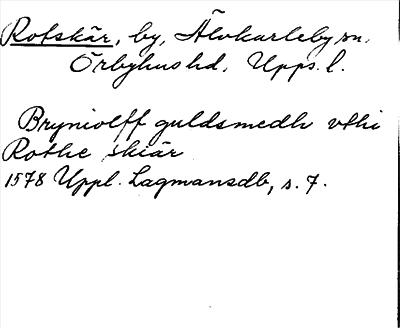 Rotskär, by, Älvkarleby sn.
Örbyhus hd, Upps. l.
Bryniolff guldsmedh vthi
Rothe skiär
1578 Uppl. Lagmansdb, s. 7.